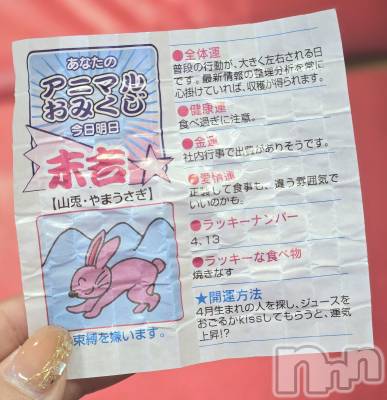 あなたの
アニマル
おみくじ
今日明日
末吉
【山兎・やまうさぎ】
束縛を嫌います。
●全体運
普段の行動が、大きく左右される日
です。最新情報の整理分析を常に
心掛けていれば、収穫が得られます。
●健康運
食べ過ぎに注意。
●金運
社内行事で出費がありそうです。
愛情運
正装して食事も、違う雰囲気で
いいのかも。
●ラッキーナンバー
4、13
●ラッキーな食べ物
焼きなす
★開運方法
4月生まれの人を探し、ジュースを
おごるかkissしてもらうと、運気
上昇!?